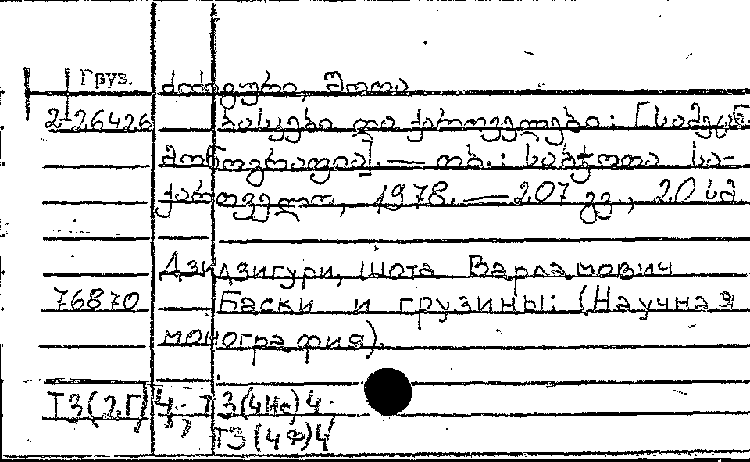 Груз.
ძიძიგური, შოთა
2-26426 ბასკები და ქართველები: [სამეცნ.
მონოგრაფია]. — თბ.: საბჭოთა სა-
ქართველო, 1978. — 207 გვ., 20 სმ
Дзидзигури, Шота Варламович
76870 Баски и грузины: (Научная
монография).
ТЗ(2Г)4; ТЗ(4Ис)4;
ТЗ(4Ф)4